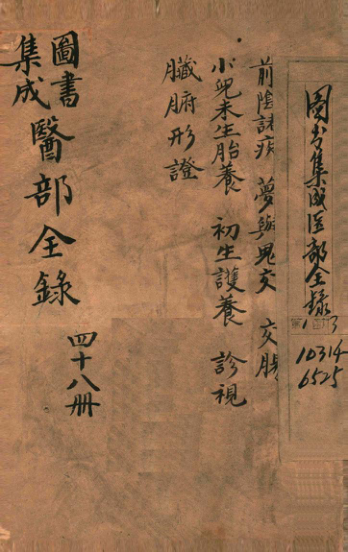 圖書集成医部全録
10314
6525
前陰諸疾 夢與鬼交 交腸
小兒未生胎養 初生護養 診視
臟腑形證
圖書
集成
醫部全錄
四十八冊